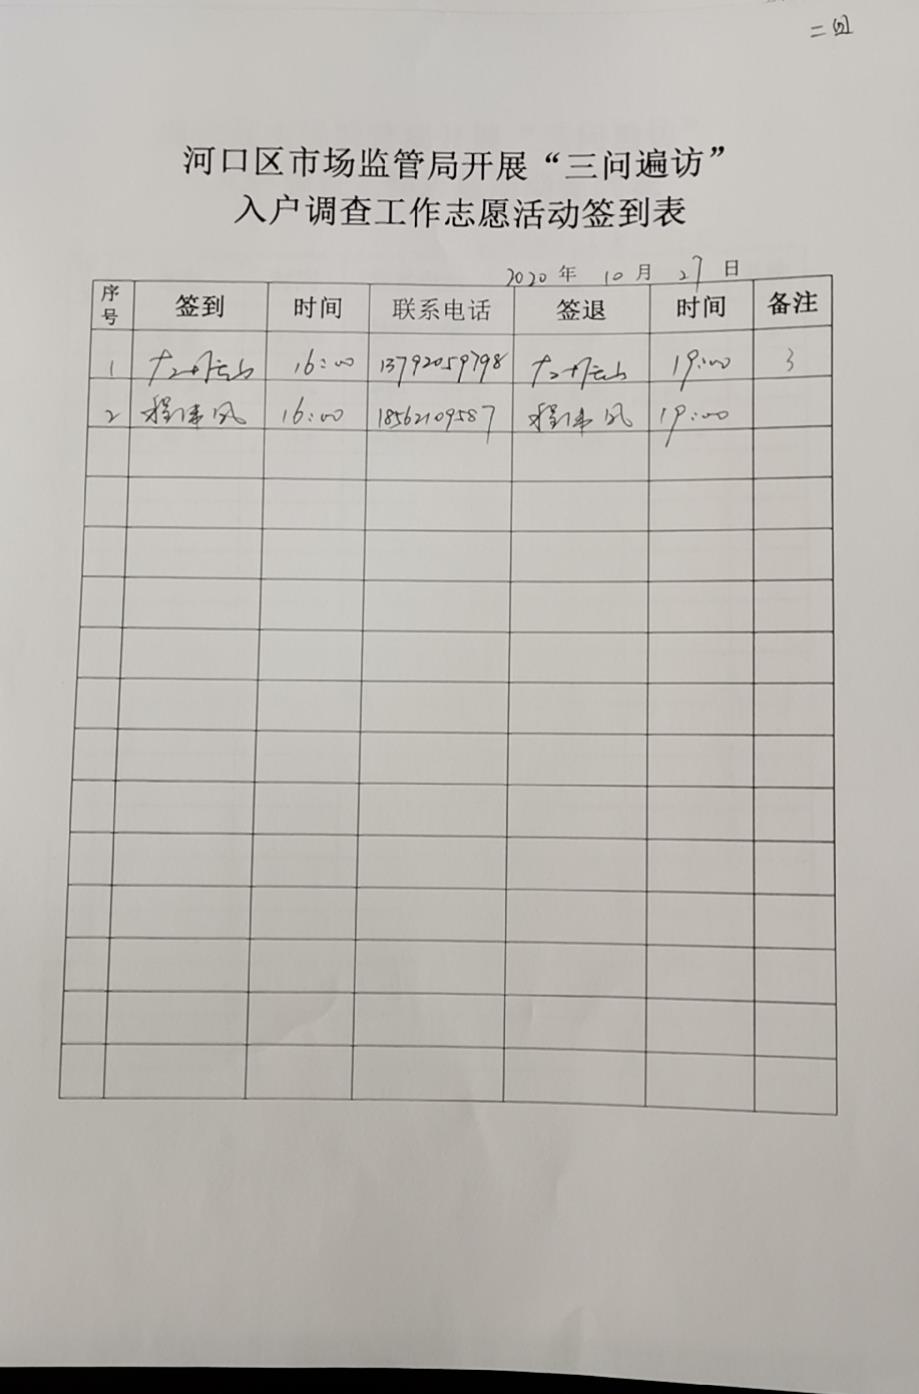 二
河口区市场监管局开展“三问遍访”
入户调查工作志愿活动签到表
2020 年 10 月 27 日
序号 签到 时间 联系电话 签退 时间 备注
1 16:00 13792059798 19:00 3
2 程伟风 16:00 18562109587 程伟风 19:00